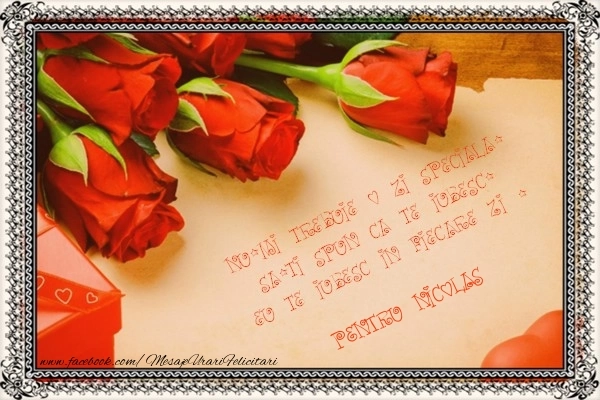 NU*MI TREBUIE O ZI SPECIALA*
SA*TI SPUN CA TE IUBESC*
EU TE IUBESC IN FIECARE ZI *
PENTRU NICOLAS
www.facebook.com/MesajeUrariFelicitari